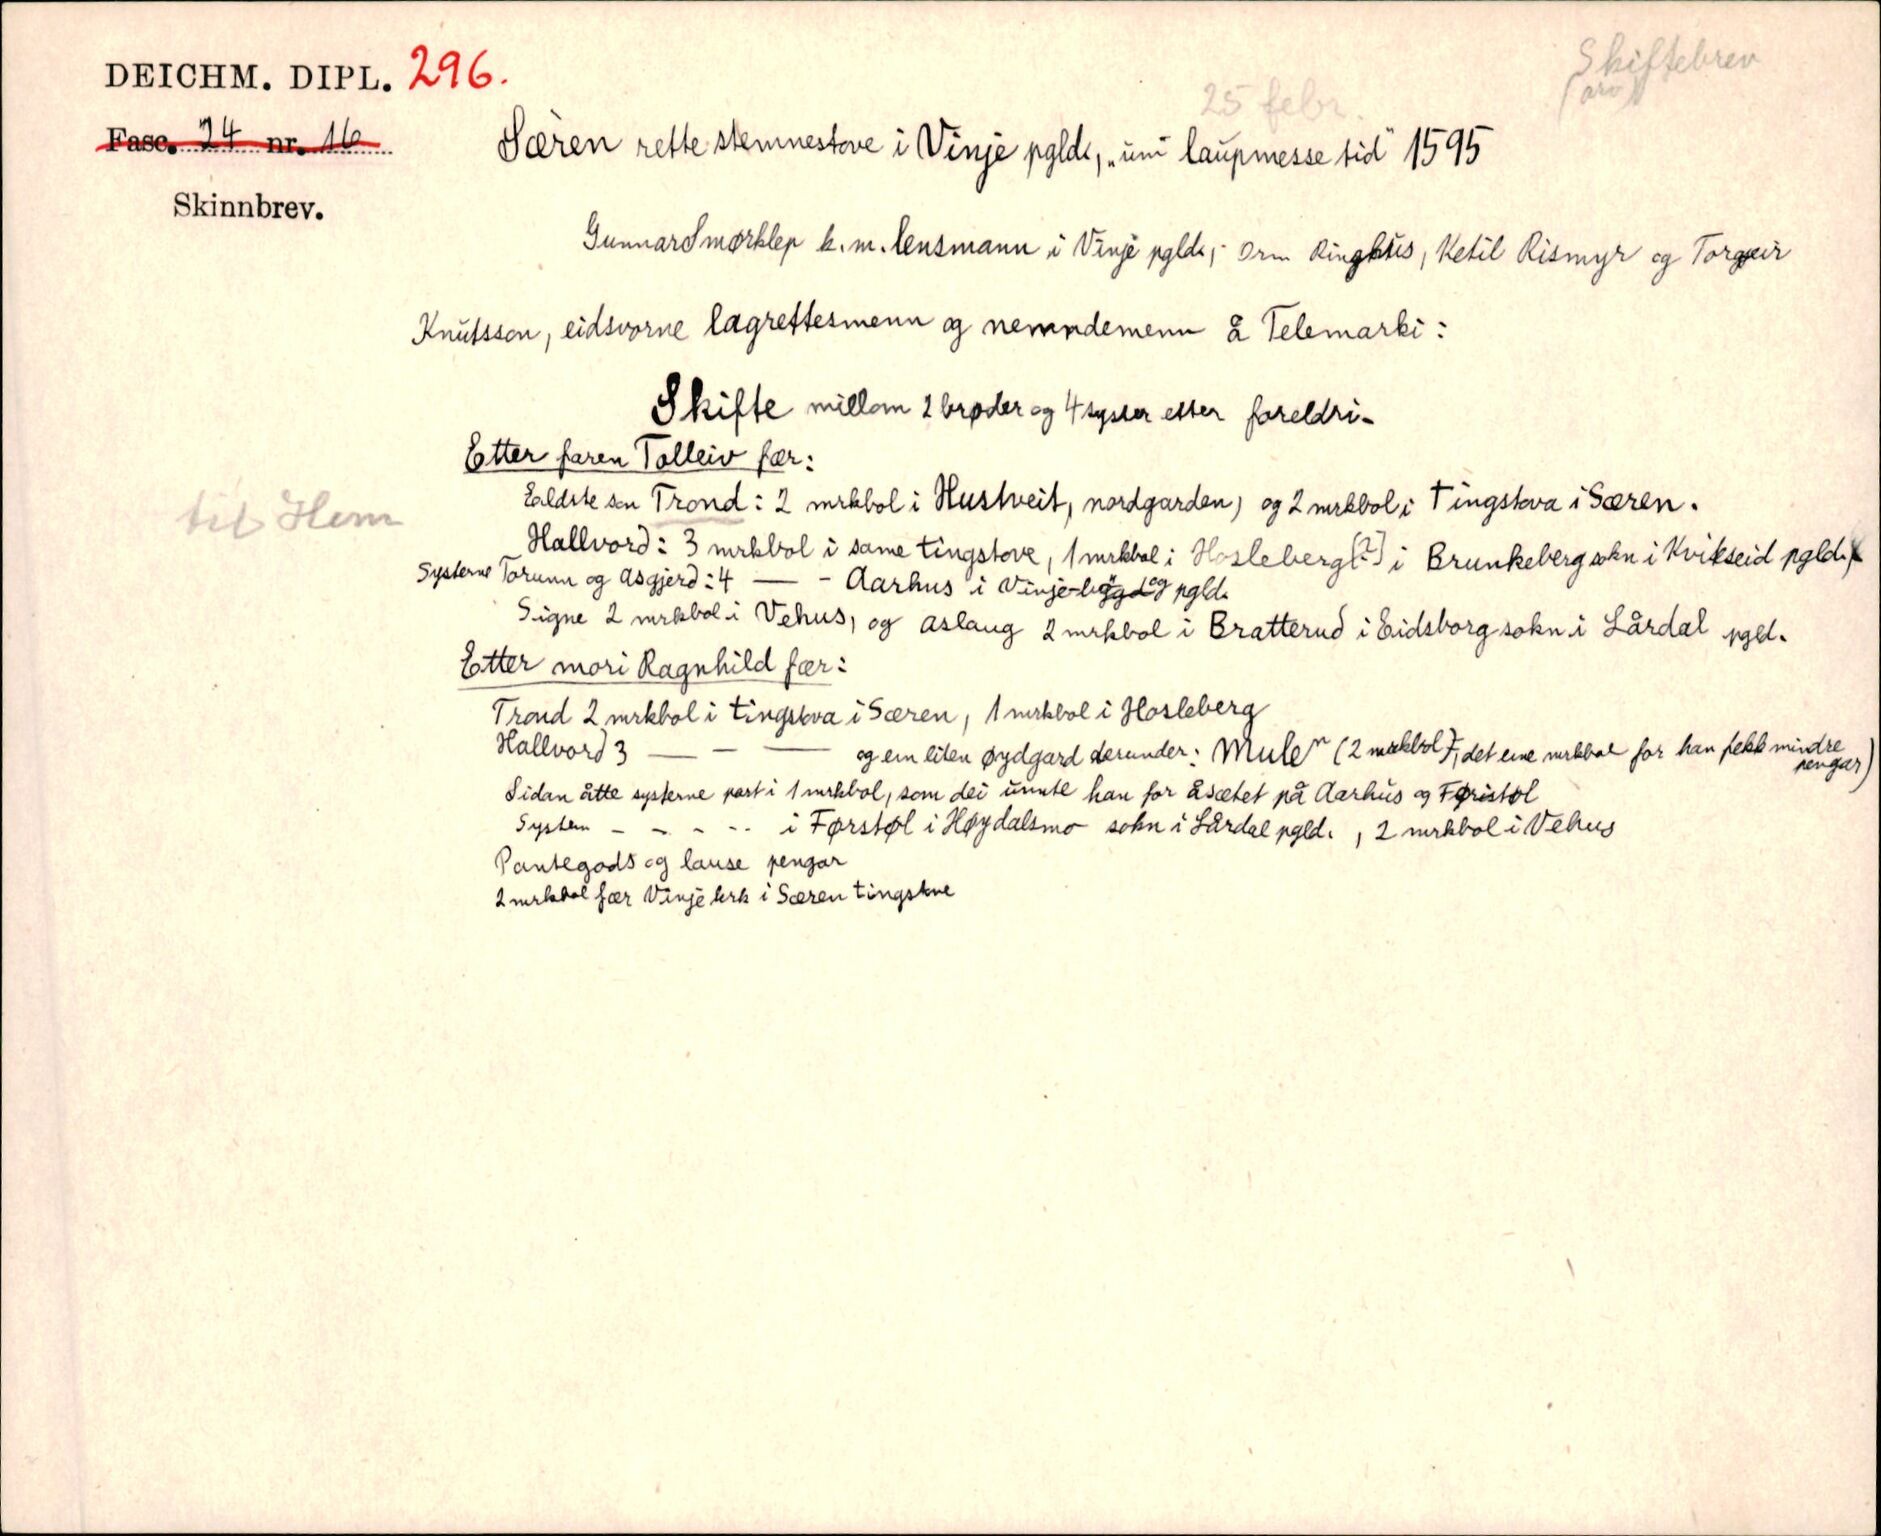 DEICHM. DIPL. 296.
Skiftebrev
arv
Fasc. 24 nr. 16
25 febr.
Særen rette stemnestove i Vinje pgld., "um laupmesse tid" 1595
Skinnbrev.
Gunnar Smørklep k.m. lensmann i Vinje pgld., Orm Ringhus, Ketil Rismyr og Torgeir
Knutsson, eidsvorne lagrettesmenn og nemndemenn å Telemarki:
Skifte millom 2 brøder og 4 syster etter foreldri.
Etter faren Tolleiv fær:
Eldste son Trond: 2 mrkbol i Hustveit, nordgarden, og 2 mrkbol i Tingstova i Særen.
til Hem
Hallvord: 3 mrkbol i same tingstove, 1 mrkbol i Hosleberg [?] i Brunkeberg sokn i Kvikseid pgld.
Systerne Torunn og Asgjerd: 4 — - Aarhus i Vinje-bygd og pgld.
Signe 2 mrkbol i Vehus, og Aslaug 2 mrkbol i Bratterud i Eidsborg sokn i Lårdal pgld.
Etter mori Ragnhild fær:
Trond 2 mrkbol i tingstova i Særen, 1 mrkbol i Hosleberg
Hallvord 3 — - — og ein liten øydgard derunder: Mule" (2 mrkbol), det eine mrkbol for han fekk mindre pengar)
Sidan åtte systerne part i 1 mrkbol, som dei unnte han for åsætet på Aarhus og Føristøl
Systern - - - - i Førstøl i Høydalsmo sokn i Lårdal pgld., 2 mrkbol i Vehus
Pantegods og lause pengar
2 mrkbol fær Vinje krk i Særen tingstove